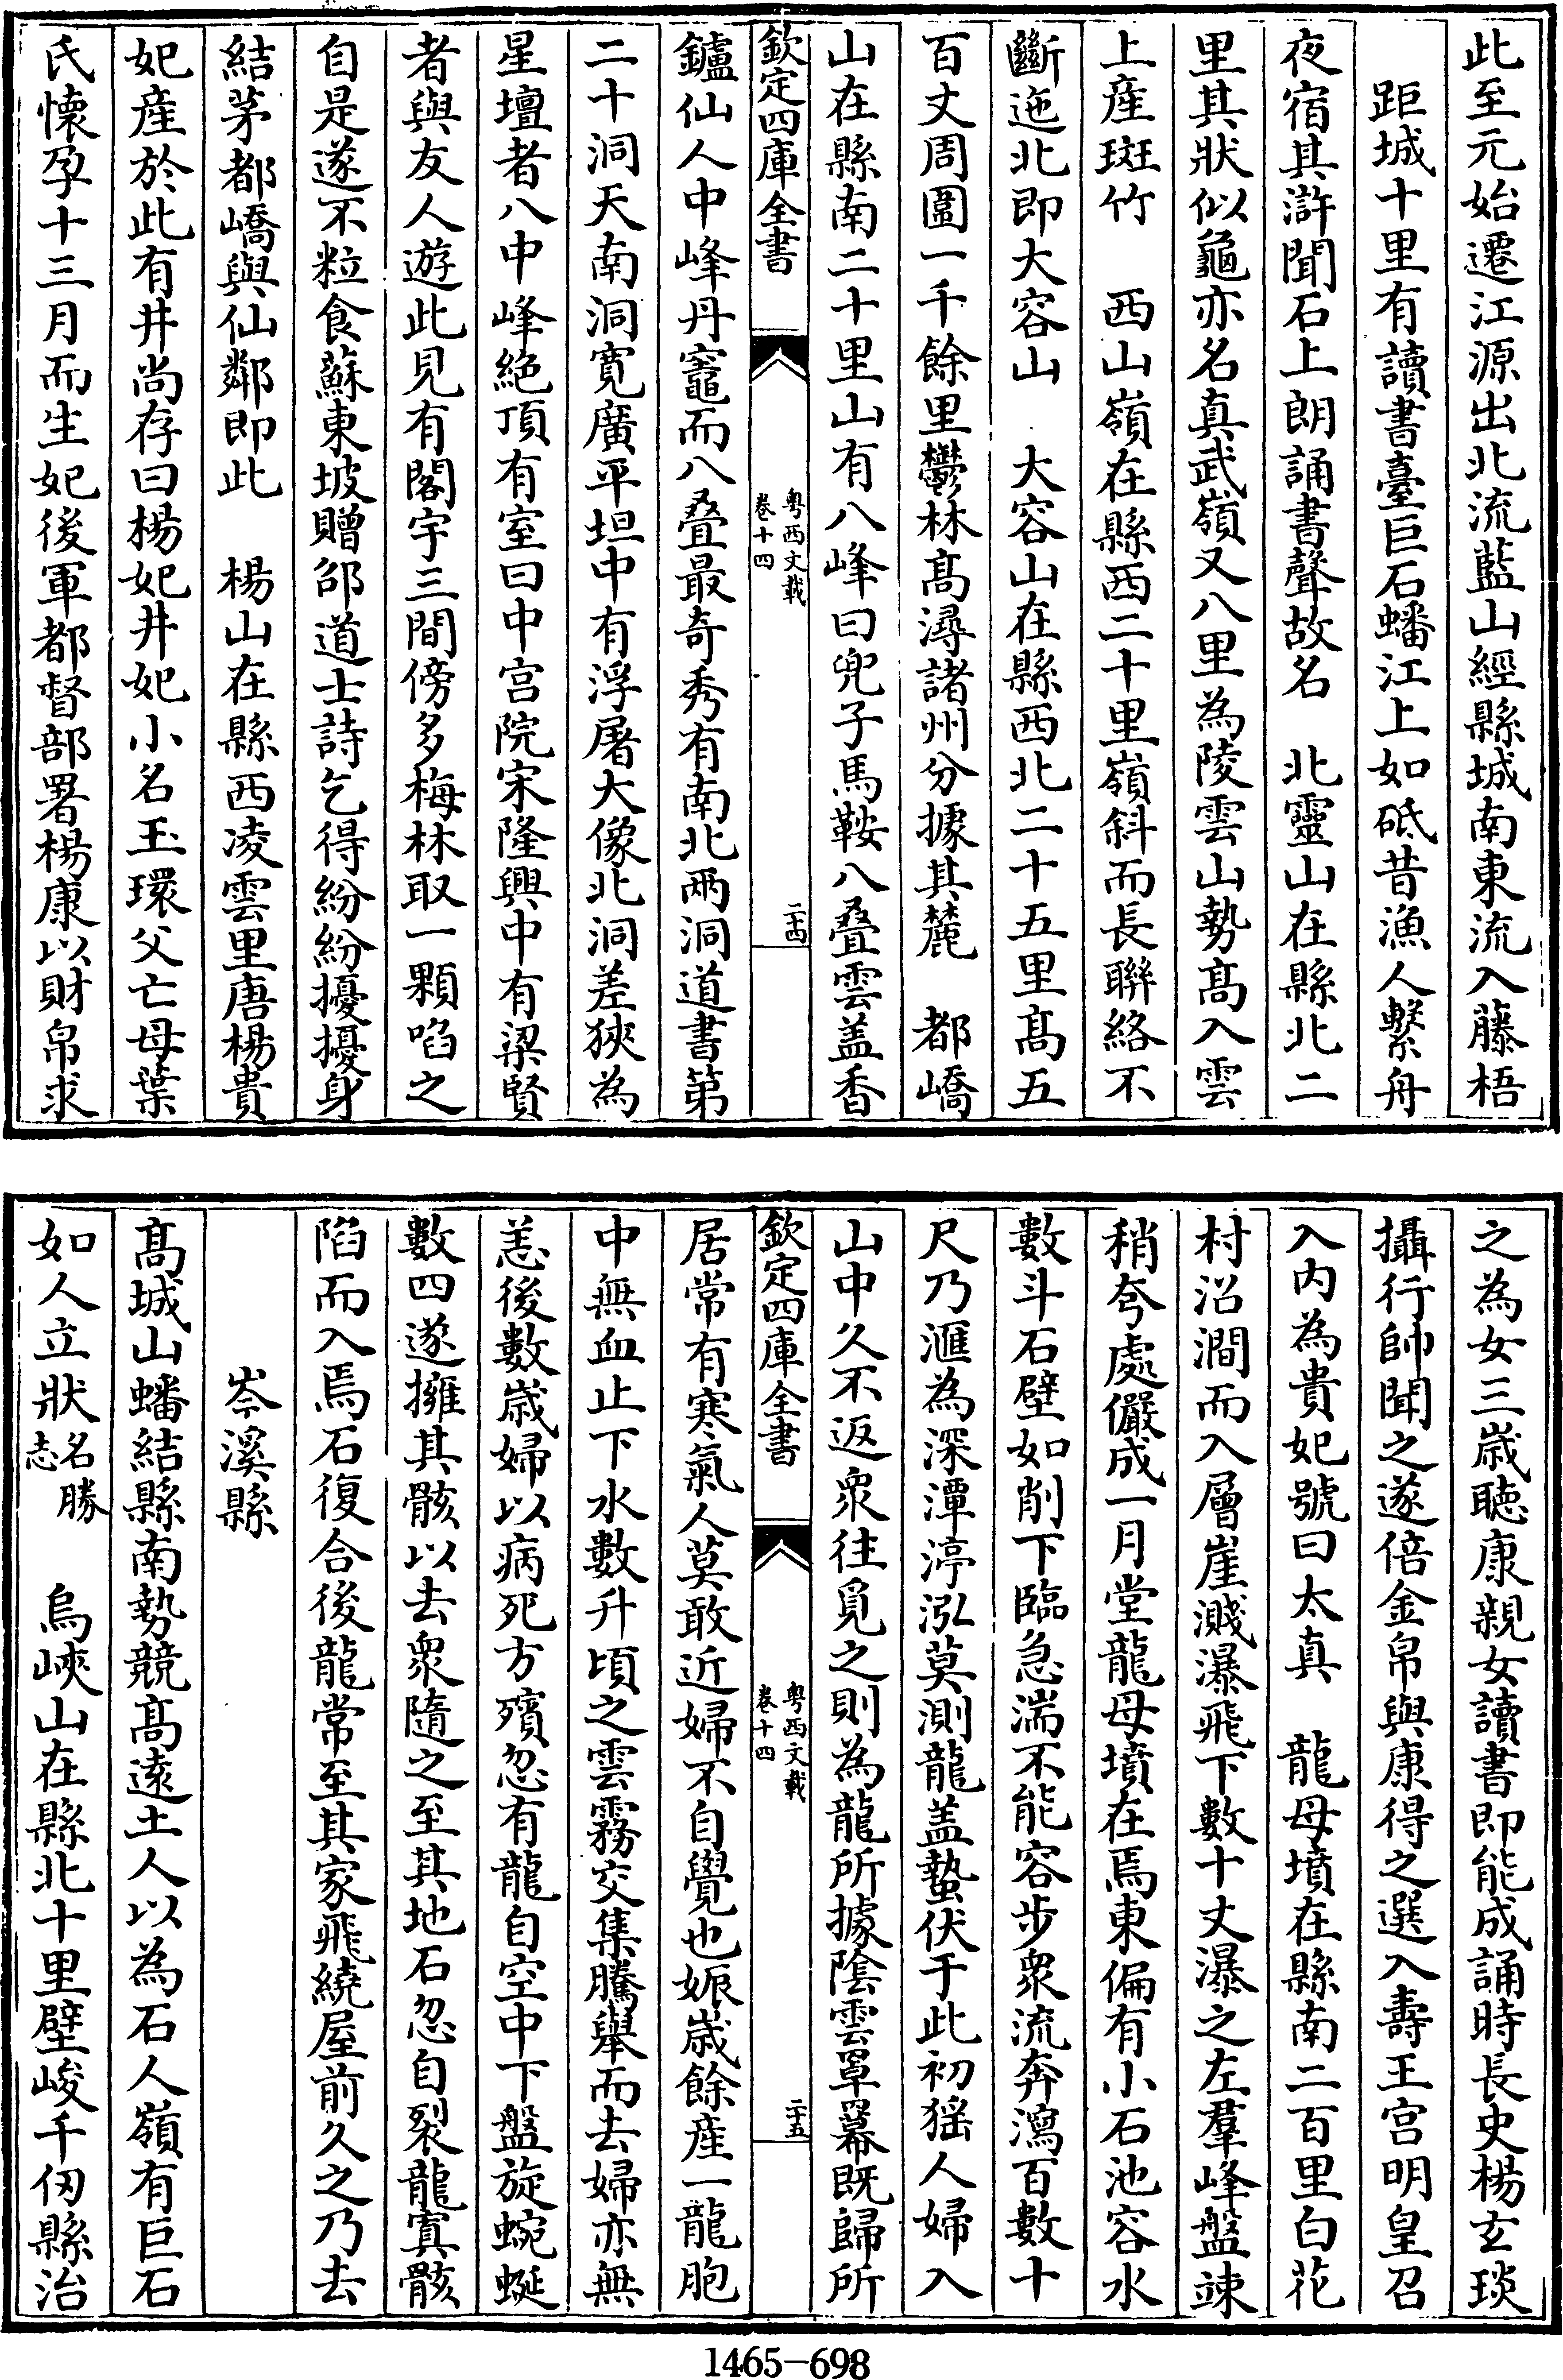 此至元始遷江源出北流藍山經縣城南東流入藤梧
距城十里有讀書臺巨石蟠江上如砥昔漁人繫舟
夜宿其滸聞石上朗誦書聲故名　北靈山在縣北二
里其狀似龜亦名真武嶺又八里為陵雲山勢髙入雲
上産斑竹　西山嶺在縣西二十里嶺斜而長聯絡不
斷迤北即大容山　大容山在縣西北二十五里髙五
百丈周圍一千餘里鬱林髙潯諸州分據其麓　都嶠
山在縣南二十里山有八峰曰兜子馬鞍八叠雲盖香
欽定四庫全書
粤西文載
卷十四
二十四
鑪仙人中峰丹竈而八叠最奇秀有南北兩洞道書第
二十洞天南洞寛廣平坦中有浮屠大像北洞差狹為
星壇者八中峰絶頂有室曰中宫院宋隆興中有梁賢
者與友人遊此見有閣宇三間傍多梅林取一顆啗之
自是遂不粒食蘇東坡贈邵道士詩乞得紛紛擾擾身
結茅都嶠與仙鄰即此　楊山在縣西凌雲里唐楊貴
妃産於此有井尚存曰楊妃井妃小名玉環父亡母葉
氏懐孕十三月而生妃後軍都督部署楊康以財帛求
之為女三嵗聴康親女讀書即能成誦時長史楊玄琰
攝行帥聞之遂倍金帛與康得之選入壽王宫明皇召
入内為貴妃號曰太真　龍母墳在縣南二百里白花
村沿澗而入層崖濺瀑飛下數十丈瀑之左羣峰盤竦
稍夸處儼成一月堂龍母墳在焉東偏有小石池容水
數斗石壁如削下臨急湍不能容步衆流奔瀉百數十
尺乃滙為深潭渟泓莫測龍盖蟄伏于此初猺人婦入
山中久不返衆往覓之則為龍所據陰雲罩冪既歸所
欽定四庫全書
粤西文載
卷十四
二十五
居常有寒氣人莫敢近婦不自覺也娠嵗餘産一龍胞
中無血止下水數升頃之雲霧交集騰舉而去婦亦無
恙後數嵗婦以病死方殯忽有龍自空中下盤旋蜿蜒
數四遂擁其骸以去衆隨之至其地石忽自裂龍寘骸
陷而入焉石復合後龍常至其家飛繞屋前久之乃去
岑溪縣
髙城山蟠結縣南勢競髙逺土人以為石人嶺有巨石
如人立狀名勝志　烏峽山在縣北十里壁峻千仞縣治
1465-698